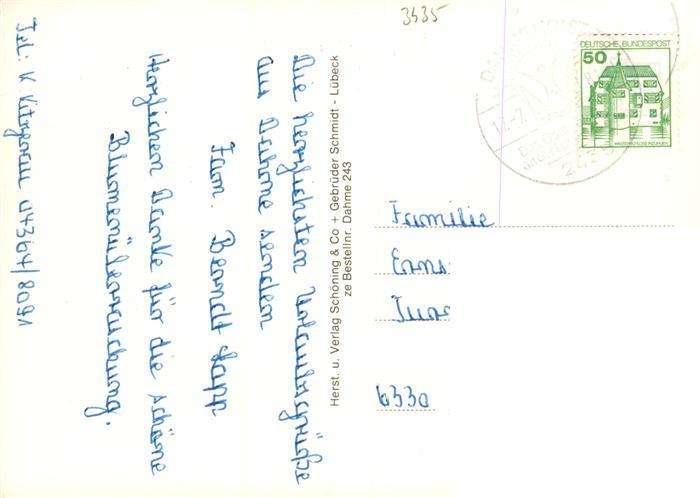 3435
Die herzlichsten Urlaubsgrüße
aus Dahme senden
Fam. Berndt
Herzlichen Danke für die schöne
Blumenüberraschung.
Tel: 04364/8091
Herst. u. Verlag Schöning & Co + Gebrüder Schmidt - Lübeck
ze Bestellnr. Dahme 243
DEUTSCHE BUNDESPOST
50
Familie
Erns
6330